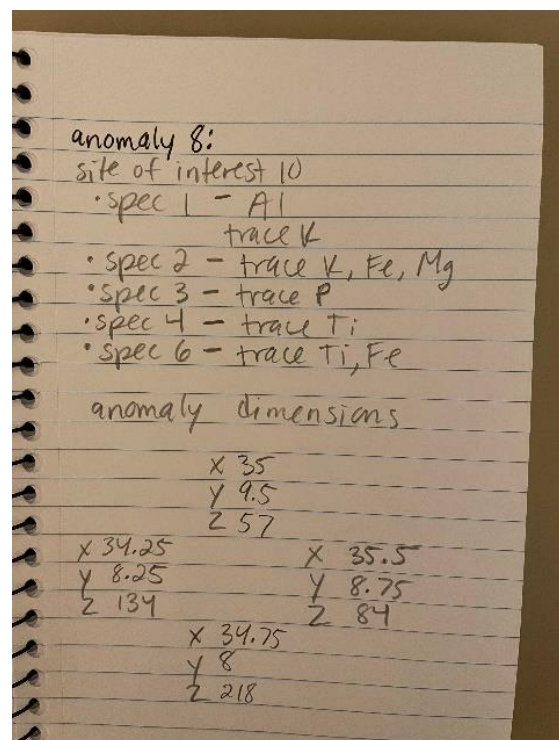 anomaly 8:
site of interest 10
• spec 1 - Al
trace K
• spec 2 - trace K, Fe, Mg
• spec 3 - trace P
• spec 4 - trace Ti
• spec 6 - trace Ti, Fe
anomaly dimensions
X 35
Y 9.5
Z 57
X 34.25
Y 8.25
Z 134
X 35.5
Y 8.75
Z 84
X 34.75
Y 8
Z 218